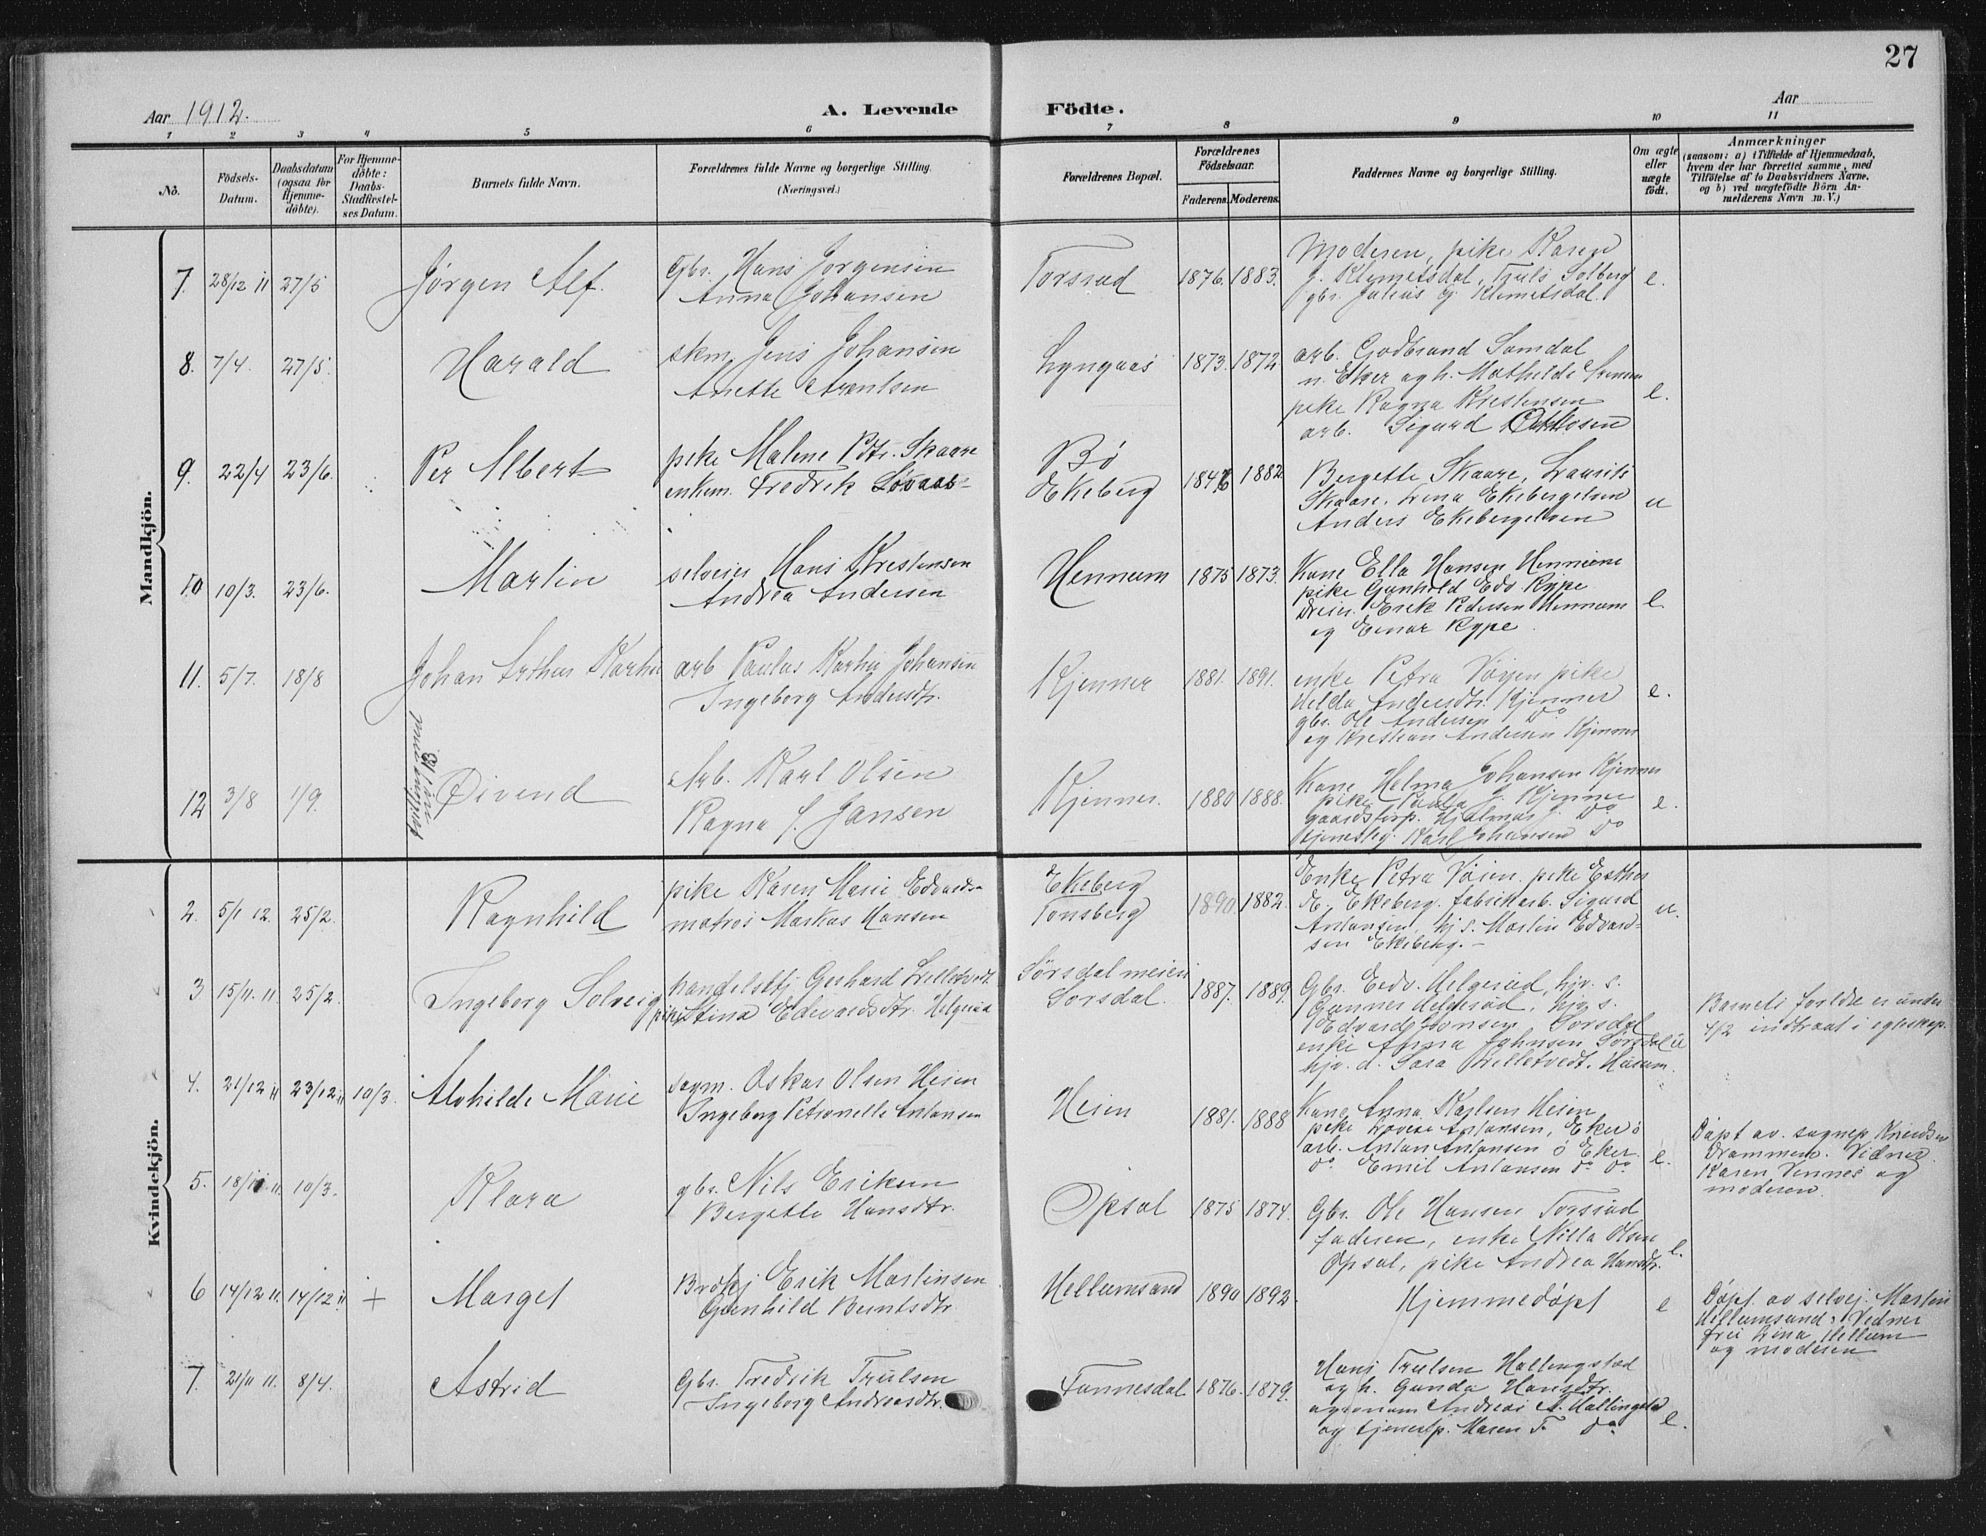 27
Aar 1912.
A. Levende Födte.
Aar
1 2 3 4 5 6 7 8 9 10 11
No.
Födsels-Datum.
Daabsdatum (ogsaa for Hjemmedöbte).
For Hjemmedöbte: Daabs-Stadfæstelses Datum.
Barnets fulde Navn.
Forældrenes fulde Navne og borgerlige Stilling.
(Næringsvei.)
Forældrenes Bopæl.
Forældrenes Födselsaar.
Faderens. Moderens.
Faddernes Navne og borgerlige Stilling.
Om ægte eller uægte födt.
Anmærkninger
(saasom: a) i Tilfælde af Hjemmedaab, hvem der har forrettet samme, med Tilföielse af to Daabsvidners Navne, og b) ved uægtefödte Börn Anmelderens Navn m. V.)
Mandkjön.
7. 28/12 11 27/5 Jørgen Alf.
Gbr. Hans Jorgensen
Anna Johansen
Torsrud 1876. 1883.
Moderen, pike Karen
J. Klemetsdal, Truls Solberg
gbr. Julius J. Klemetsdal.
e.
8. 7/4. 27/5. Harald
skm. Jens Johansen
Anette Arentsen
Lyngaas 1873. 1872
arb. Gudbrand Samdal
n. Eker og h. Mathilde
pike Ragna Kristensen
arb. Sigurd
e.
9. 22/4 23/6. Per Albert
pike Malene Pdtr. Skaare
enkem. Fredrik Lovaas
Bø
Ekeberg
1846 1882
Bergette Skaare, Laurits
Skaare, Lina Ekebergeisen
Anders Ekebergeisen
u
10 10/3. 23/6. Martin
selveier Hans Kristensen
Andrea Andersen
Hennum 1875 1873.
Kone Ella Hansen Hennum
pike Gunhild Edv Rype
Dreier. Erik Pedersen Hennum
og Einar Rype.
e.
11. 5/7. 18/8 Johan Arthur
arb Paulus Johansen
Ingeborg Andersdtr.
Kjenner 1881. 1891.
enke Petra Vøyen pike
Helda Andersdtr. Kjenner
gbr. Ole Andersen Do
og Kristian Andersen Kjenner
e.
12 3/8 1/9. Øivend
Arb. Karl Olsen
Ragna J. Jansen
Kjenner. 1880 1888.
Kone Helma Johansen Kjenner
pike Paula J. Kjenner
gaardsforp. Hjalmar J. Do
Karl Johansen Do
e.
Kvindekjön.
2. 5/1 12. 25/2. Ragnhild
pike Karen Marie Edvards-
matros Markus Hansen
Ekeberg
Tønsberg
1890 1882.
Enke Petra Vøien. pike Esther
E. Ekeberg. fabrikarb. Sigurd
Antonsen, hj s. Martin Edvard-
sen Ekeberg.
u.
3 15/11. 11. 25/2. Ingeborg Solveig
handelsbtj Gerhard Lilletvedt
pike Stina Edvardsdtr. Helgerud
Sørsdal meieri
Sørsdal.
1887. 1889.
Gbr. Edv. Helgerud, hjv. s.
Gunner Helgerud, hjv. s.
Edvard Sorsdal
enke Anna Johnsen Sørsdal
hjv. d. Sara Lilletvedt. Husum
u
Barnets forldre er under
4/2 indtraat i egteskap.
4. 21/12 11 23/12 11 10/3. Alvhilde Marie
sagm. Oskar Olsen Heien
Ingeborg Petronelle Antonsen
Heien 1881. 1888
Kone Anna Karlsen Heien
pike Lovise Antonsen, Eker ø
arb. Anton Antonsen ø Eker.
Do Emil Antonsen Do Do
e.
Døpt av. sognep Knudsen
Drammen. Vidner
Karen Vennes og
moderen.
5. 18/11. 11. 10/3. Klara
gbr. Nils Eriksen
Bergette Hansdtr.
Opsal 1875 1874.
Gbr. Ole Hansen Torsrud
faderen, enke Nilla Olsen
Opsal, pike Andrea Hansdtr.
e.
6 14/12 11. 14/12 11 + Marget
Erik Martinsen
Gunhild Berntsdtr.
Hellumsand 1890 1892.
Hjemmedøpt
e
Døpt. av selvej. Martin
Hellumsand: Vidner
fru Lina Hellum
og moderen
7. 21/11 11. 8/4. Astrid
Gbr. Fredrik Trulsen
Ingeborg Andreasdtr.
Tannesdal 1876. 1879.
Hans Trulsen Hallingstad
og h. Gunda Hansdtr.
agronom Andreas A. Hallingstad
og tjenestp. Maren T. Do
e.